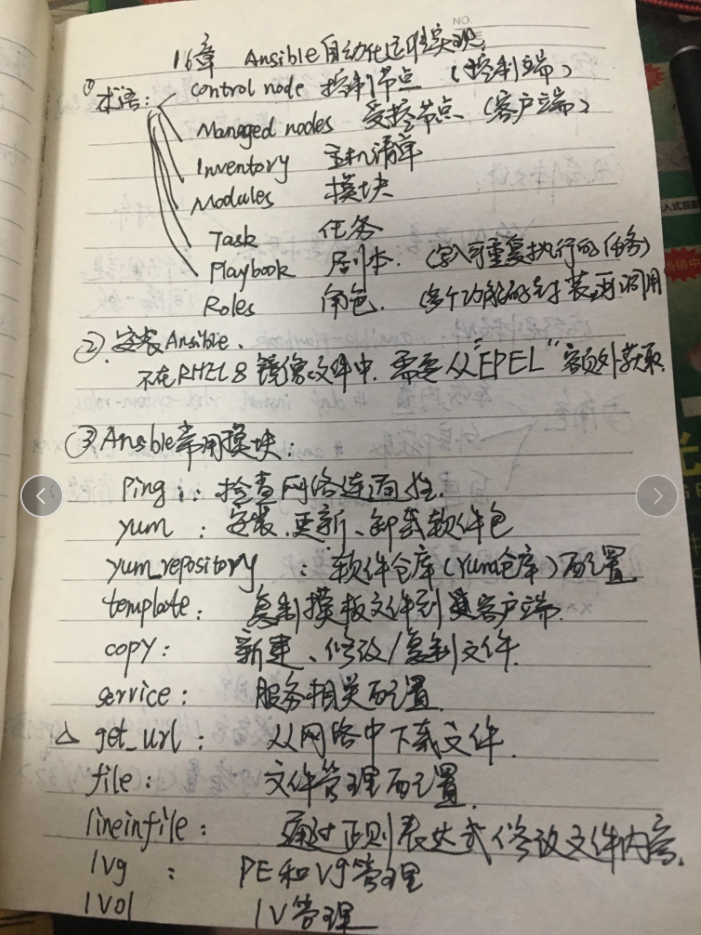 NO.
16章 Ansible自动化运维实现
①术语: control node 控制节点 (控制端)
Managed nodes 受控节点 (客户端)
Inventory 主机清单
Modules 模块
Task 任务
Playbook 剧本. (写入可重复执行的任务)
Roles 角色. (多个功能封装再调用
② 安装Ansible.
不在RHEL8镜像文件中. 需要从"EPEL"额外获取.
③ Ansble常用模块:
Ping: 检查网络连通性.
yum : 安装、更新、卸载软件包
yum_repository : 软件仓库(Yum仓库)配置
template: 复制模板文件到客户端.
copy: 新建、修改/复制文件.
service: 服务相关配置.
△ get_url: 从网络中下载文件.
file: 文件管理配置.
lineinfile: 通过正则表达式修改文件内容.
lvg : PE和Vg管理
lvol lV管理